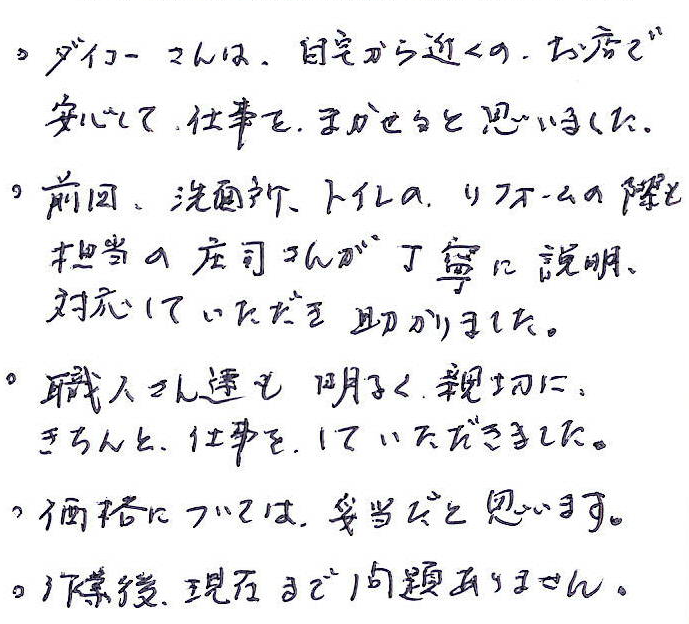 。ダイコーさんは、自宅から近くの、お店で
安心して、仕事を、まかせると思いました。
。前回、洗面所、トイレの、リフォームの際も
担当の庄司さんが丁寧に説明、
対応していただき助かりました。
。職人さん達も明るく、親切に、
きちんと、仕事を、していただきました。
。価格については、妥当だと思います。
。作業後、現在まで問題ありません。